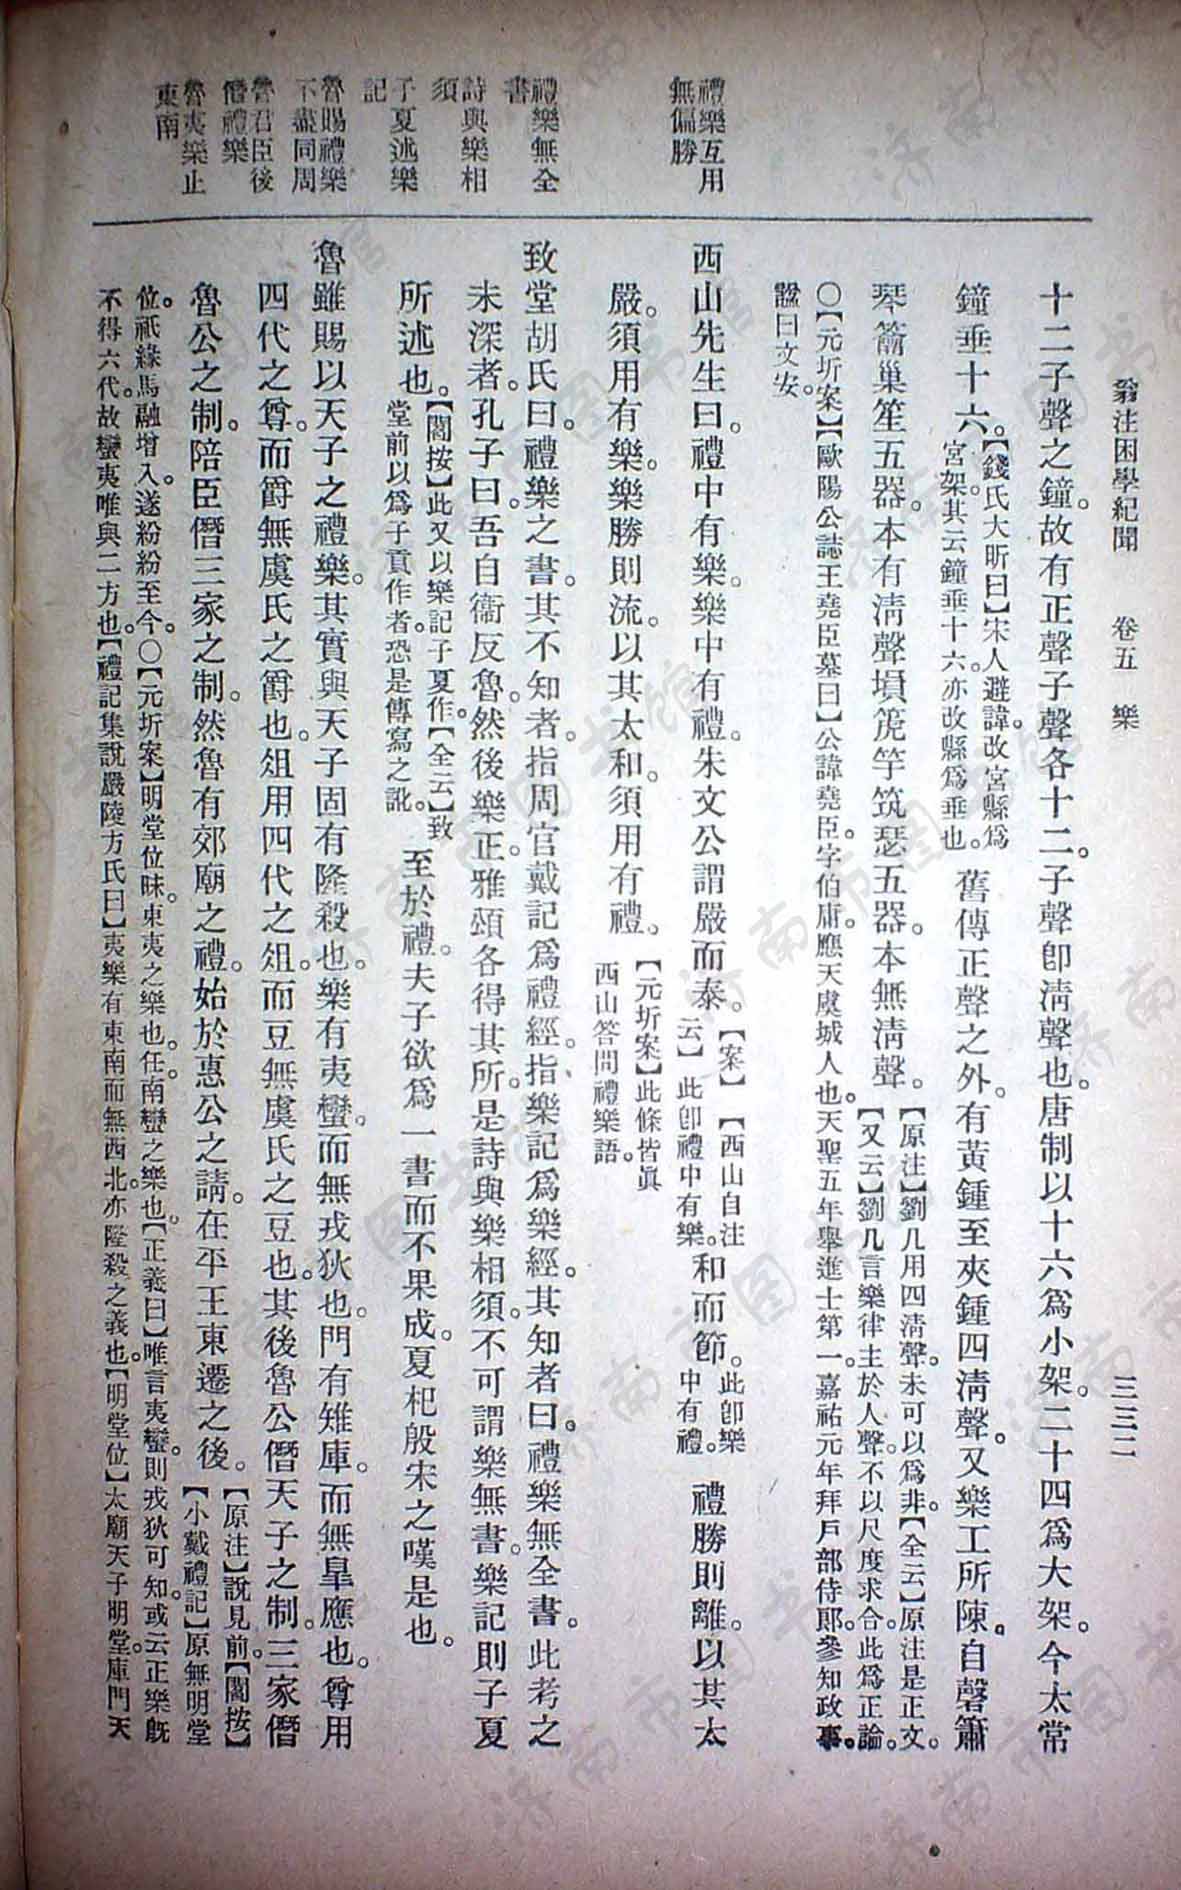 翁注困學紀聞　卷五　樂　三三二
十二子聲之鐘。故有正聲子聲各十二。子聲卽淸聲也。唐制以十六爲小架。二十四爲大架。今太常
鐘垂十六。【錢氏大昕曰】宋人避諱。改宮縣爲
宮架。其云鐘垂十六。亦改縣爲垂也。
舊傳正聲之外。有黃鍾至夾鍾四淸聲。又樂工所陳。自磬簫
琴籥巢笙五器。本有淸聲。塤篪竽筑瑟五器。本無淸聲。【原注】劉几用四淸聲。未可以爲非。【全云】原注是正文。
【又云】劉几言樂律主於人聲。不以尺度求合。此爲正論。
○【元圻案】【歐陽公誌王堯臣墓曰】公諱堯臣。字伯庸。應天虞城人也。天聖五年舉進士第一。嘉祐元年拜戶部侍郞。參知政事。
諡曰文安。
禮樂互用
無偏勝
西山先生曰。禮中有樂。樂中有禮。朱文公謂嚴而泰。【案】【西山自注
云】此卽禮中有樂。
和而節。此卽樂
中有禮。
禮勝則離。以其太
嚴。須用有樂。樂勝則流。以其太和。須用有禮。【元圻案】此條皆眞
西山答問禮樂語。
禮樂無全
書
詩與樂相
須
子夏述樂
記
致堂胡氏曰。禮樂之書。其不知者。指周官戴記爲禮經。指樂記爲樂經。其知者曰。禮樂無全書。此考之
未深者。孔子曰。吾自衞反魯。然後樂正。雅頌各得其所。是詩與樂相須。不可謂樂無書。樂記則子夏
所述也。【閻按】此又以樂記子夏作。【全云】致
堂前以爲子貢作者。恐是傳寫之訛。
至於禮。夫子欲爲一書而不果成。夏杞殷宋之嘆是也。
魯賜禮樂
不盡同周
魯君臣後
僭禮樂
魯夷樂止
東南
魯雖賜以天子之禮樂。其實與天子固有隆殺也。樂有夷蠻。而無戎狄也。門有雉庫。而無皐應也。尊用
四代之尊。而爵無虞氏之爵也。俎用四代之俎。而豆無虞氏之豆也。其後魯公僭天子之制。三家僭
魯公之制。陪臣僭三家之制。然魯有郊廟之禮。始於惠公之請。在平王東遷之後。【原注】說見前。【閻按】
【小戴禮記】原無明堂
位。祇緣馬融增入。遂紛紛至今。○【元圻案】明堂位昧。東夷之樂也。任。南蠻之樂也。【正義曰】唯言夷蠻。則戎狄可知。或云正樂旣
不得六代。故蠻夷唯與二方也。【禮記集說嚴陵方氏曰】夷樂有東南而無西北。亦隆殺之義也。【明堂位】太廟天子明堂。庫門天